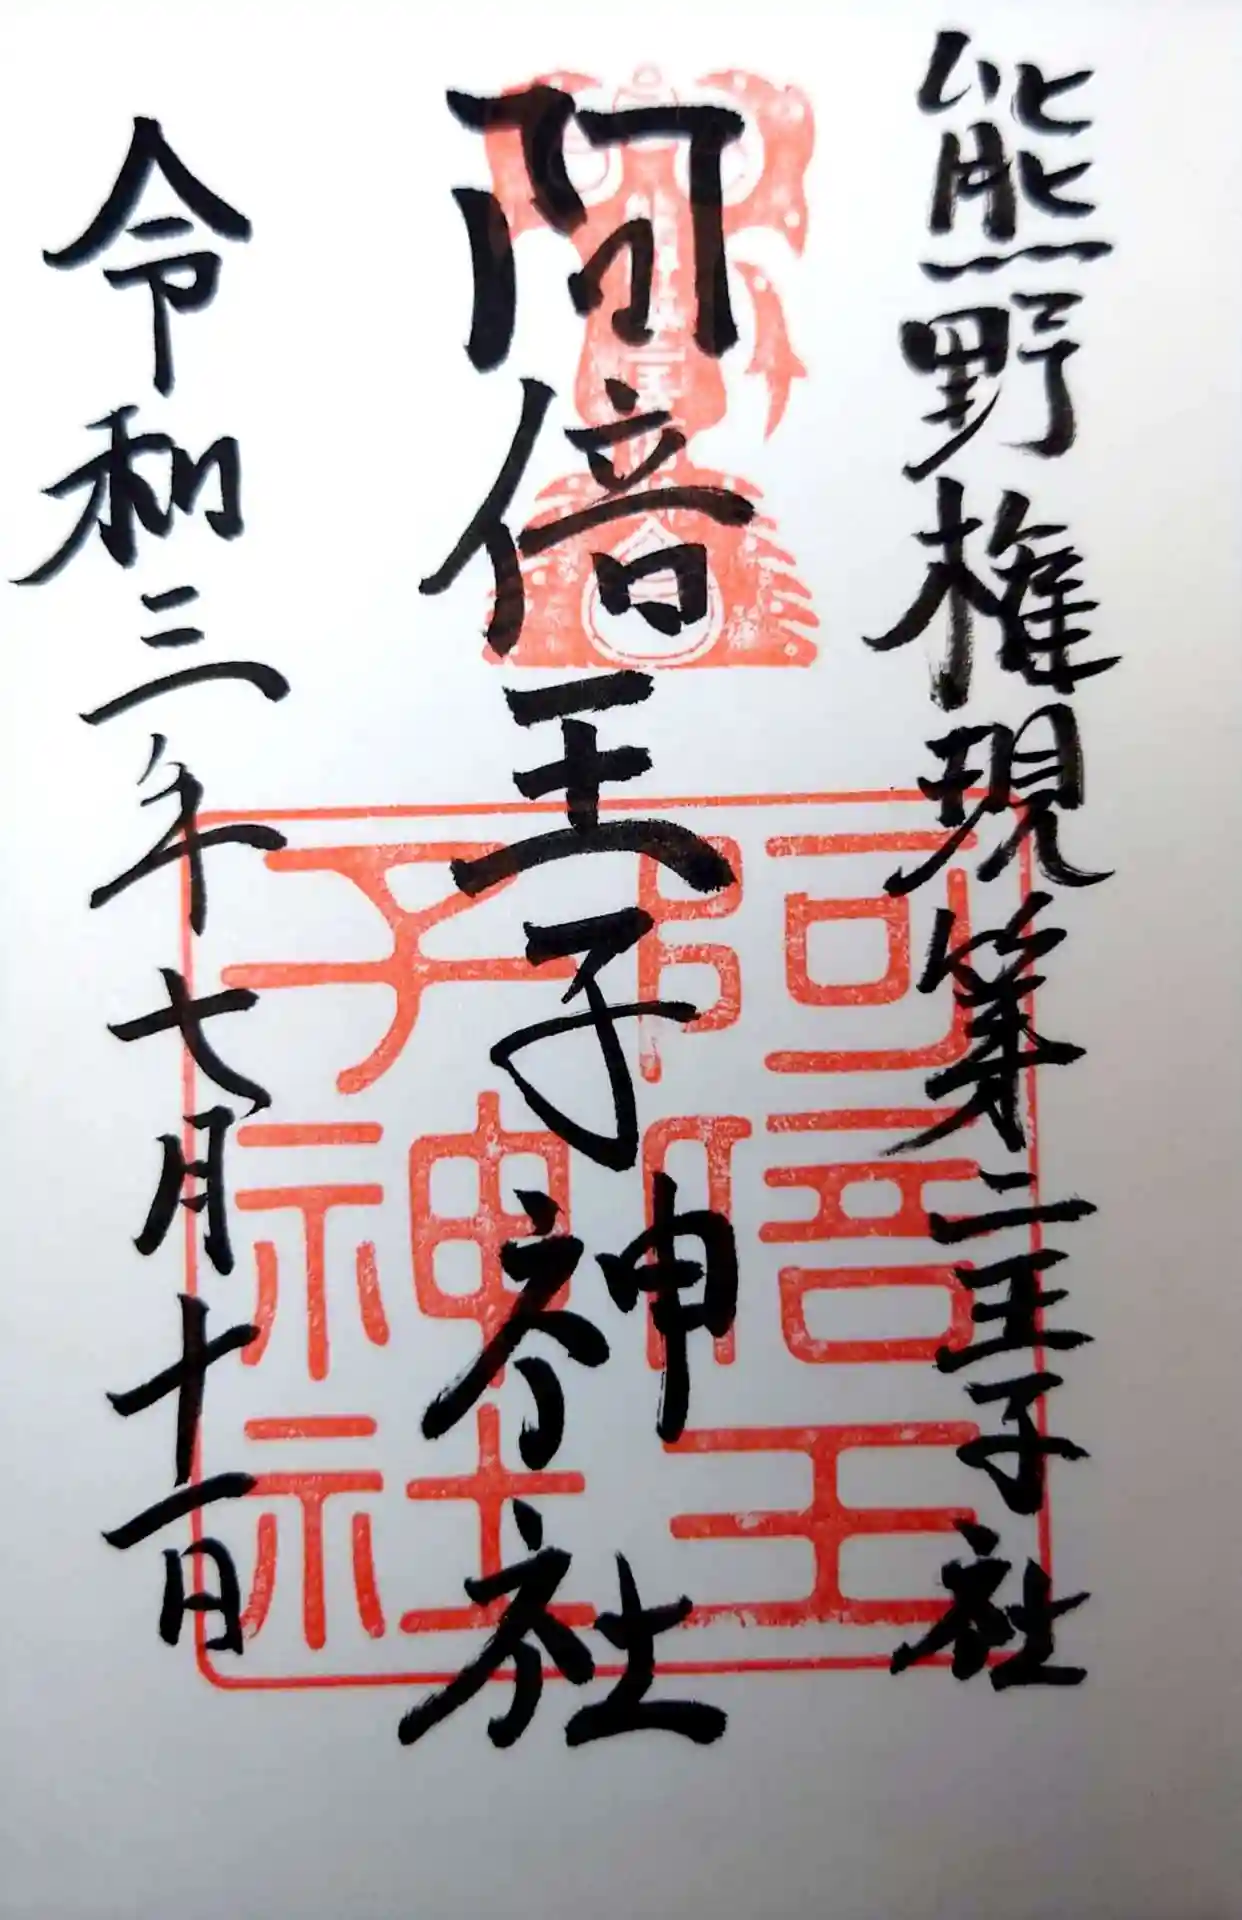 熊野権現第二王子社
阿倍王子神社
令和三年七月十一日
阿倍王
子神社